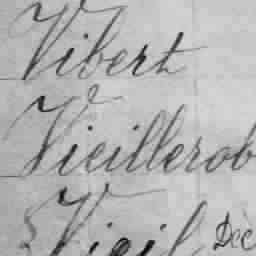 Vibert
Vieillerob
Vigil Dec